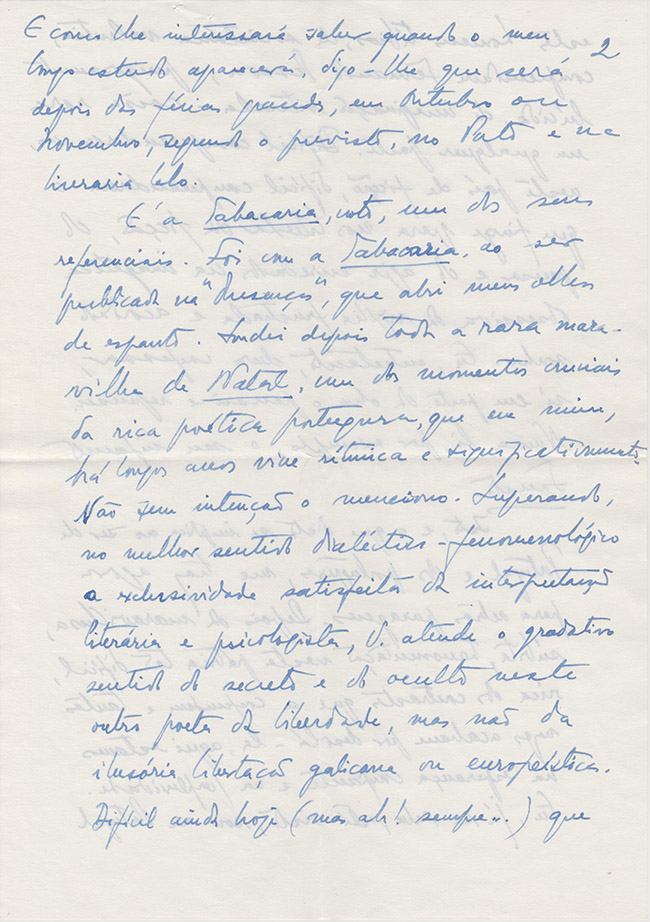 2
E como lhe interessará saber quando o meu
longo estudo aparecerá, digo-lhe que será
depois das férias grandes, em Outubro ou
Novembro, segundo o previsto, no Porto e na
livraria Lelo.
E é a Tabacaria, noto, um dos seus
referenciais. Foi com a Tabacaria, ao ser
publicada na "Presença", que abri meus olhos
de espanto. Andei depois toda a rara mara-
vilha de Natal, um dos momentos cruciais
da rica poética portuguesa, que em mim,
há longos anos vive rítmica e significativamente.
Não sem intenção o menciono. Superando,
no melhor sentido dialéctico-fenomenológico
a exclusividade satisfeita da interpretação
literária e psicologista, V. atende o gradativo
sentido do secreto e do oculto neste
outro poeta da liberdade, mas não da
ilusória libertação galicana ou europeística.
Difícil ainda hoje (mas ah! sempre...) que